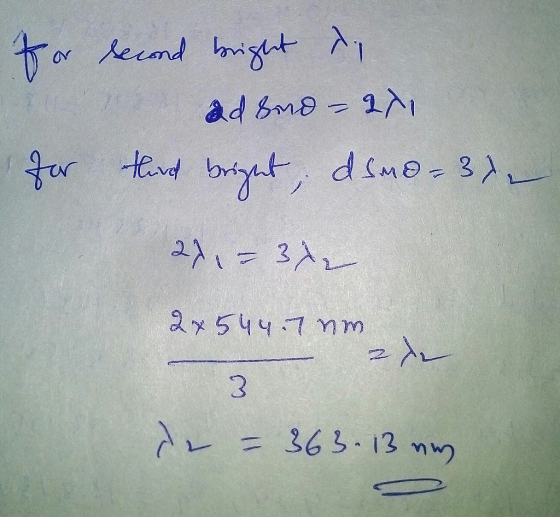 For second bright λ₁
d Sinθ = 2λ₁
for third bright, d Sinθ = 3λ₂
2λ₁ = 3λ₂
2×544.7 nm
/ 3 = λ₂
λ₂ = 363.13 nm